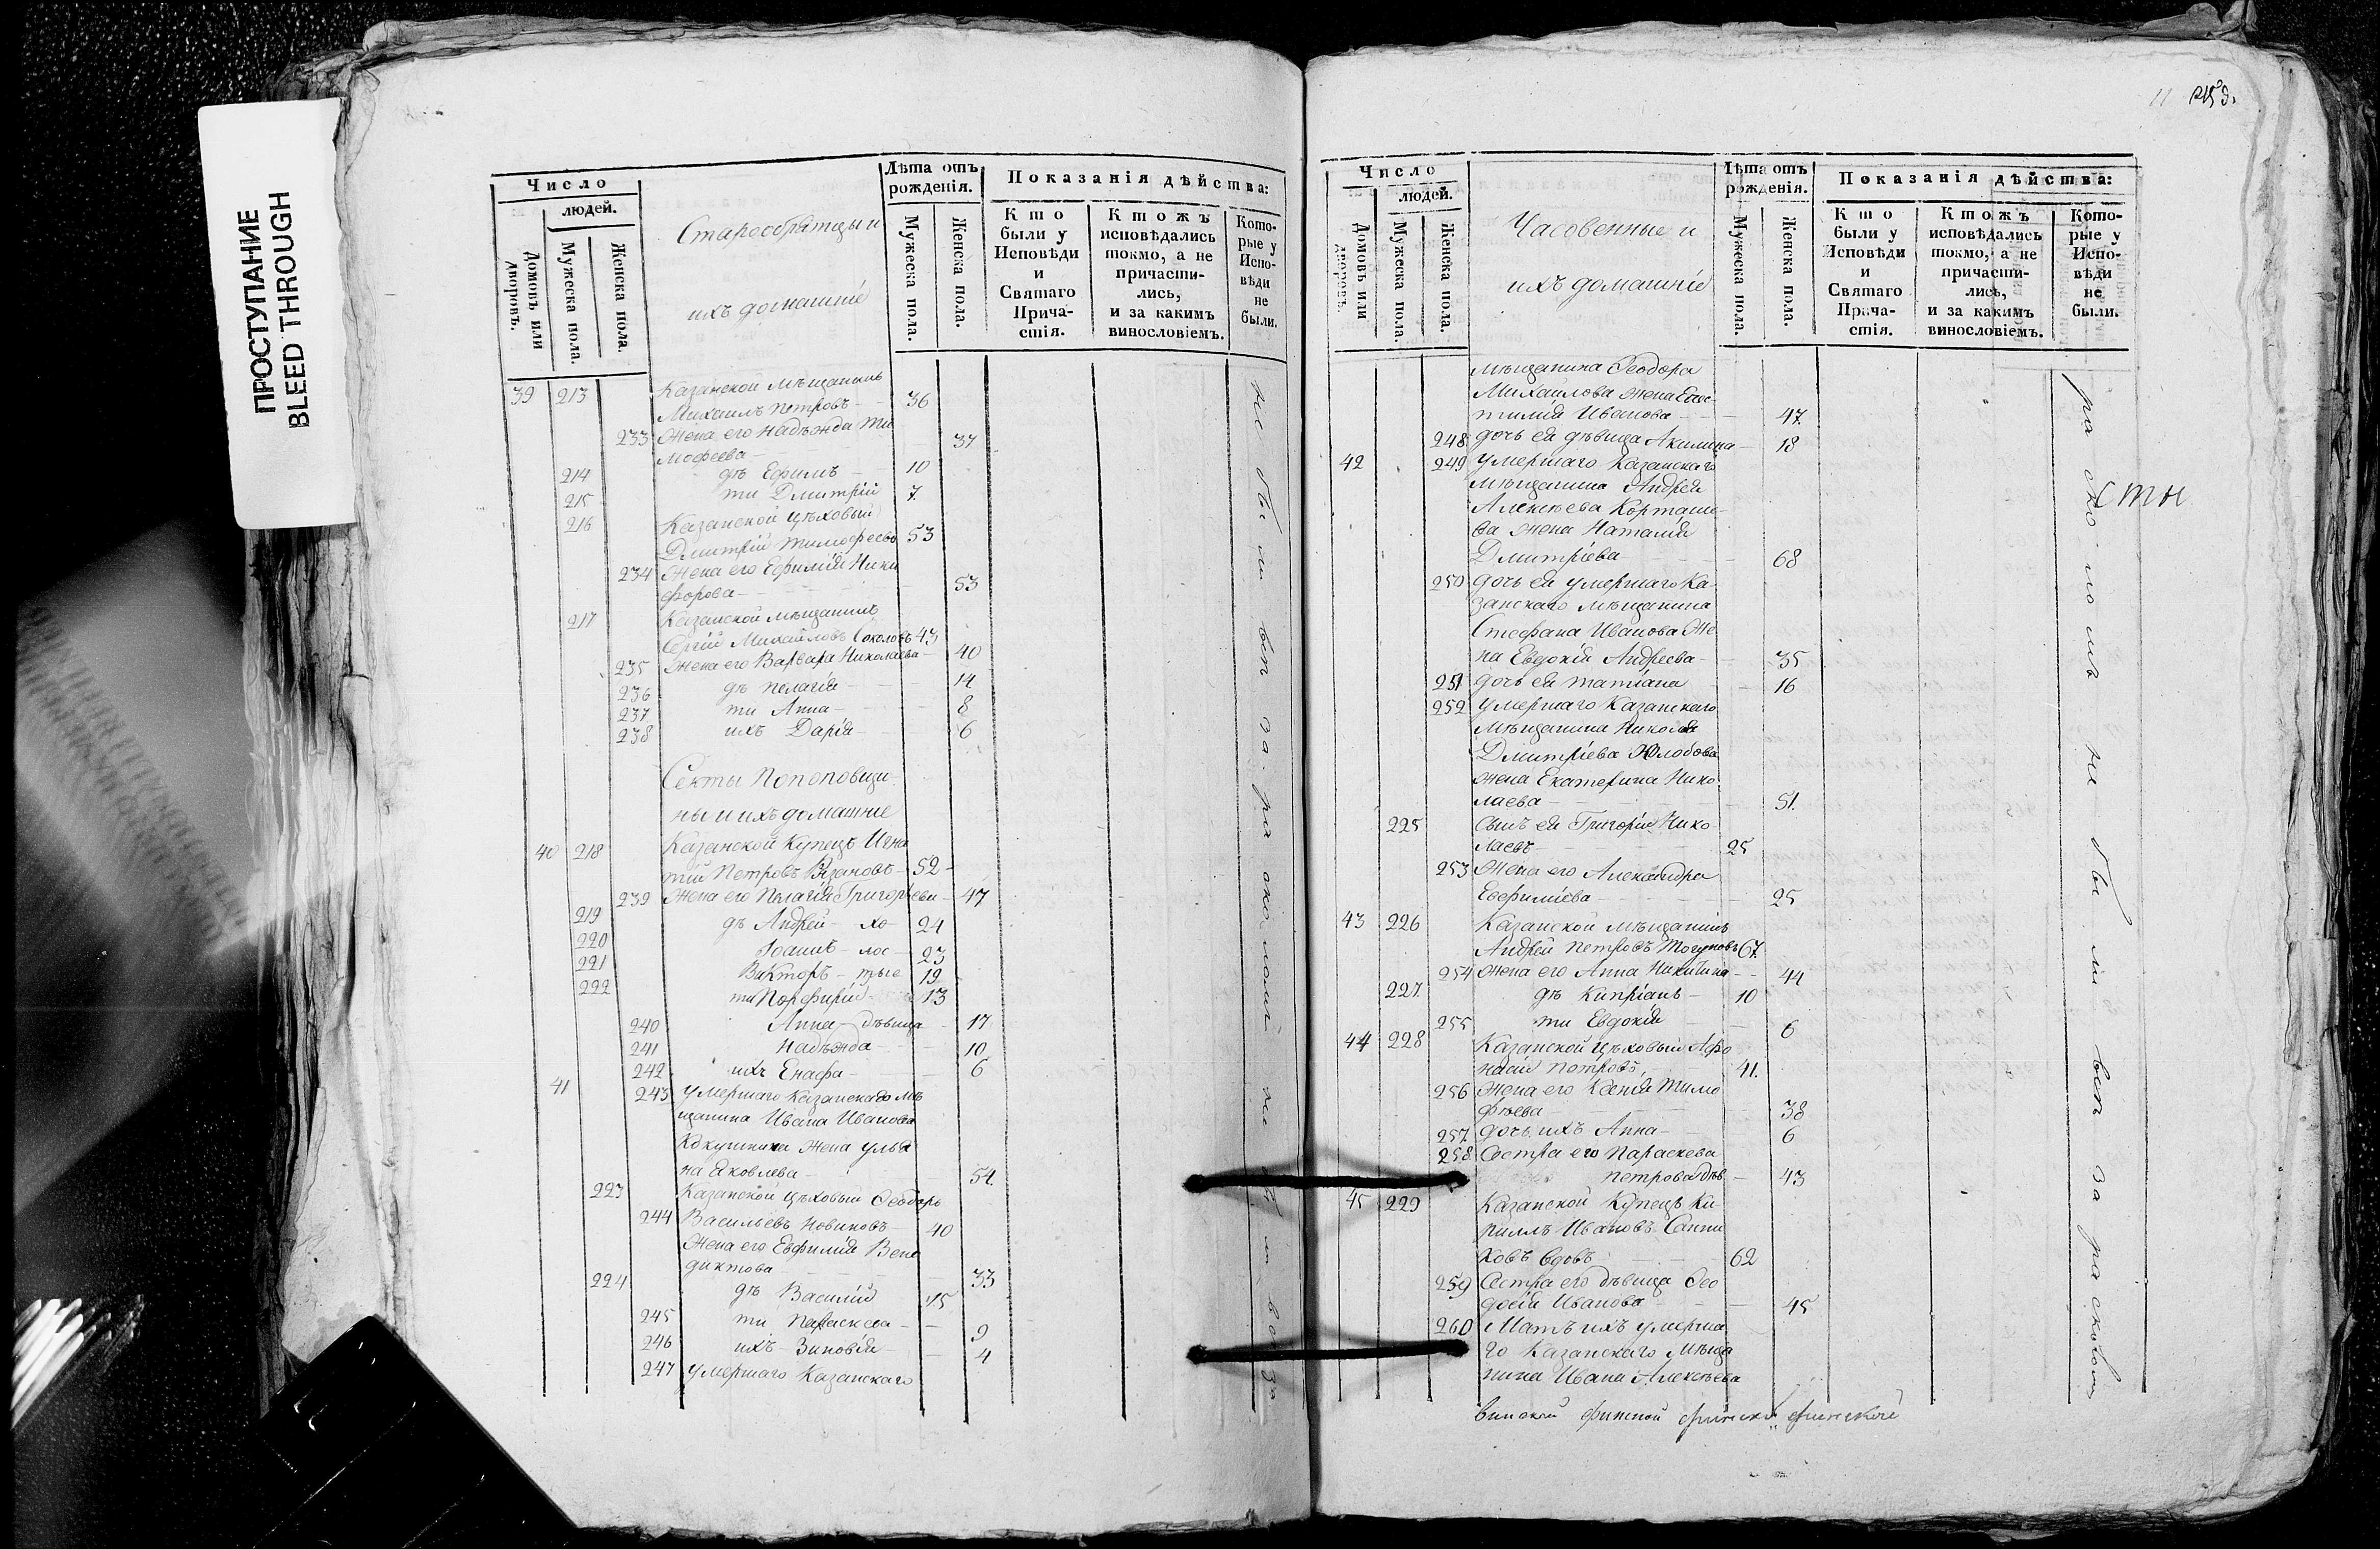 ПРОСТУПАНИЕ
BLEED THROUGH
Число
людей.
Домовъ или дворовъ.
Мужеска пола.
Женска пола.
Старообрятцы и
ихъ домашніе
Лѣта отъ рожденія.
Мужеска пола.
Женска пола.
Показанія дѣйства:
Кто были у Исповѣди и Святаго Причастія.
Ктожъ исповѣдались токмо, а не причастились, и за какимъ винословіемъ.
Которые у Исповѣди не были.
39 213 Казанской мѣщанинъ
Михаилъ Петровъ 36
233 Жена его Надѣжда Ти
мофеева 37
214 дѣ Ефимъ 10
215 ти Дмитрій 7
216 Казанской цѣховый
Дмитрій Тимофеевъ 53
234 Жена его Ефимія Ники
форова 53
217 Казанской мѣщанинъ
Сергій Михайловъ Соколовъ 43
235 Жена его Варвара Николаева 40
236 дѣ Пелагія 14
237 ти Анна 8
238 ихъ Дарія 6
Секты Попоповщи
ны и ихъ домашніе
40 218 Казанской Купецъ Игна
тій Петровъ Рязановъ 52
239 Жена его Пелагія Григорьева 47
219 дѣ Андрей хо 24
220 Іоаннъ лос 23
221 Викторъ тые 19
222 ти Порфирій 13
240 Анна дѣвица 17
241 Надѣжда 10
242 ихъ Енафа 6
41 243 Умершаго Казанскаго мѣ
щанина Ивана Иванова
Кокушкина жена Улья
на Яковлева 54
223 Казанской цѣховый Ѳеодоръ
244 Васильевъ Новиковъ 40
Жена его Евфимія Вене
диктова 33
224 дѣ Василій 15
245 ти Параскева 9
246 ихъ Зиновія 4
247 Умершаго Казанскаго
не были всѣ за расколомъ
не
Число
людей.
Домовъ или дворовъ.
Мужеска пола.
Женска пола.
Часовенные и
ихъ домашніе
Лѣта отъ рожденія.
Мужеска пола.
Женска пола.
Показанія дѣйства:
Кто были у Исповѣди и Святаго Причастія.
Ктожъ исповѣдались токмо, а не причастились, и за какимъ винословіемъ.
Которые у Исповѣди не были.
мѣщанина Ѳеодора
Михайлова жена
Иванова 47
248 дочь ея дѣвица Акилина 18
42 249 Умершаго Казанскаго
мѣщанина Андрея
Алексѣева Корташе
ва жена Наталія
Дмитріева 68
250 дочь ея умершаго Ка
занскаго мѣщанина
Стефана Иванова же
на Евдокія Андреева 35
251 дочь ея Татіана 16
252 Умершаго Казанскаго
мѣщанина Николая
Дмитріева
жена Екатерина Нико
лаева 51
225 Сынъ ея Григорій Нико
лаевъ 25
253 Жена его Александра
Евфиміева 25
43 226 Казанской мѣщанинъ
Андрей Петровъ 67
254 Жена его Анна Никитина 44
227 дѣ Кипріанъ 10
255 ти Евдокія 6
44 228 Казанской цѣховый Афо
насій Петровъ 41
256 Жена его Ксенія Тимо
фѣева 38
257 дочь ихъ Анна 6
258 Сестра его Параскева
Петрова дѣв 43
45 229 Казанской Купецъ Ки
риллъ Ивановъ Санни
ковъ вдовъ 62
259 Сестра его дѣвица Ѳео
досія Иванова 45
260 Мать ихъ умерша
го Казанскаго мѣща
нина Ивана Алексѣева
расколомъ не были всѣ за расколомъ